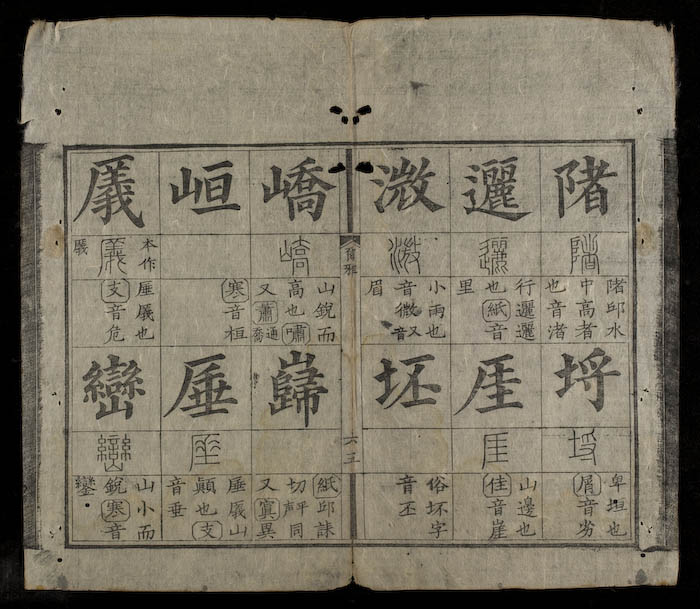 陼
陼
陼邱水
中高者
也音渚
邐
邐
行邐邐
也紙音
里
溦
溦
小雨也
音微又音
眉
埒
埒
卑垣也
屑音劣
厓
厓
山邊也
佳音崖
坯
俗坏字
音丕
爾雅
嶠
嶠
山銳而
高也嘯
又蕭通喬
峘
寒音桓
㕒
㕒
本作
㕒
厜㕒也
支音危
巋
紙邱誄
切平聲同
又寘異
厜
厜
厜㕒山
顛也支
音垂
巒
巒
山小而
銳寒音
鑾